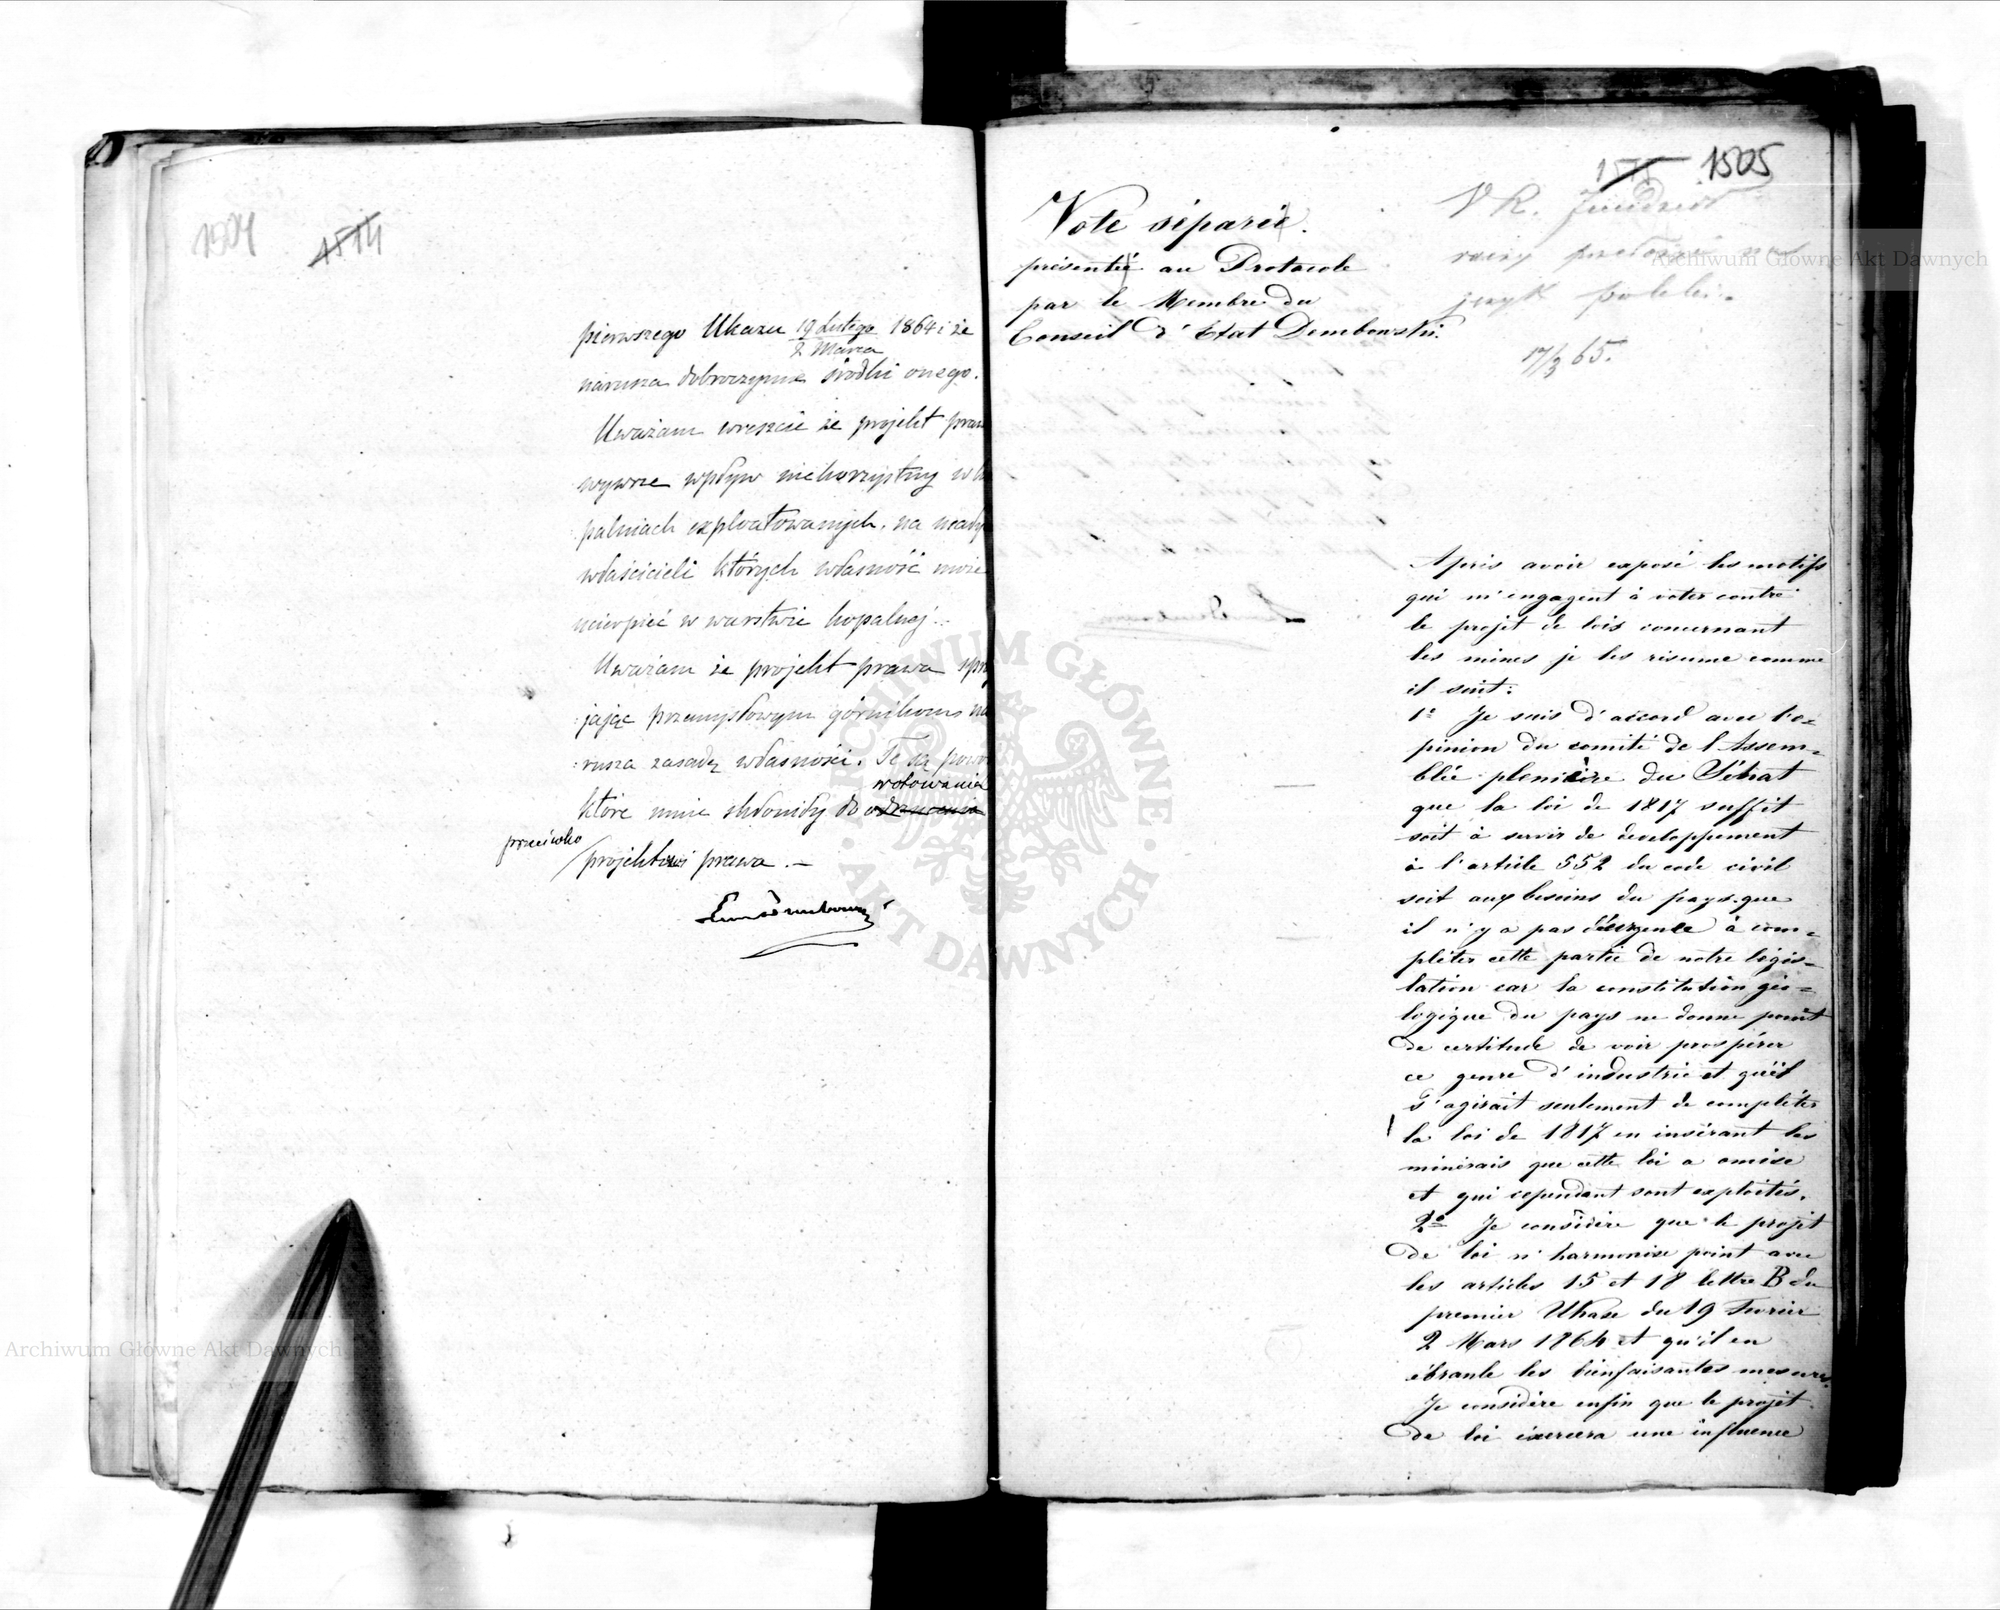 1504
1514
pierwszego Ukazu 19 Lutego / 2 Marca 1864 i że
narusza dobroczynne środki onego.
Uważam wreszcie że projekt praw
wywrze wpływ niekorzystny w ko
palniach exploatowanych, na
właścicieli których własność może
ucierpieć w warstwie kopalnej.
Uważam że projekt prawa sprzy
jając przemysłowym górnikom na
rusza zasadę własności. Te są powo
wotowania
które mnie skłoniły do odrzucenia
przeciwko
projektowi prawa. —
1515 1505
Vote séparée.
présentée au Protocole
par le Membre du
Conseil d'Etat Dembowski.
język polski.
17/3 65.
Après avoir exposé les motifs
qui m'engagent à voter contre
le projet de lois concernant
les mines je les résume comme
il suit:
1° Je suis d'accord avec l'o=
pinion du comité de l'Assem=
blée plenière du Sénat
que la loi de 1817 suffit
soit à servir de developpement
à l'article 552 du code civil
soit aux besoins du pays que
il n'y a pas d'urgence à com=
pléter cette partie de notre légis=
lation car la constitution géo=
logique du pays ne donne point
de certitude de voir prospérer
ce genre d'industrie et qu'il
s'agirait seulement de compléter
la loi de 1817 en insérant les
minérais que cette loi a omise
et qui cependant sont exploités.
2° Je considère que le projet
de loi n'harmonise point avec
les articles 15 et 18 lettre B du
premier Ukase du 19 Fevrier
2 Mars 1864 et qu'il en
ébranle les bienfaisantes mesures.
Je considère enfin que le projet
de loi exercera une influence
Archiwum Główne Akt Dawnych
Archiwum Główne Akt Dawnych
ARCHIWUM GŁÓWNE · AKT DAWNYCH ·